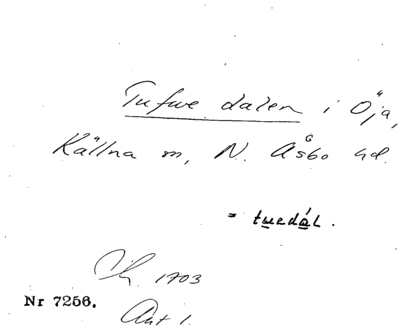 Tufwe dalen i Öja,
Källna m, N. Åsbo hd.
= tuedål.
Ch. 1703
Nr 7256.
Ant 1.